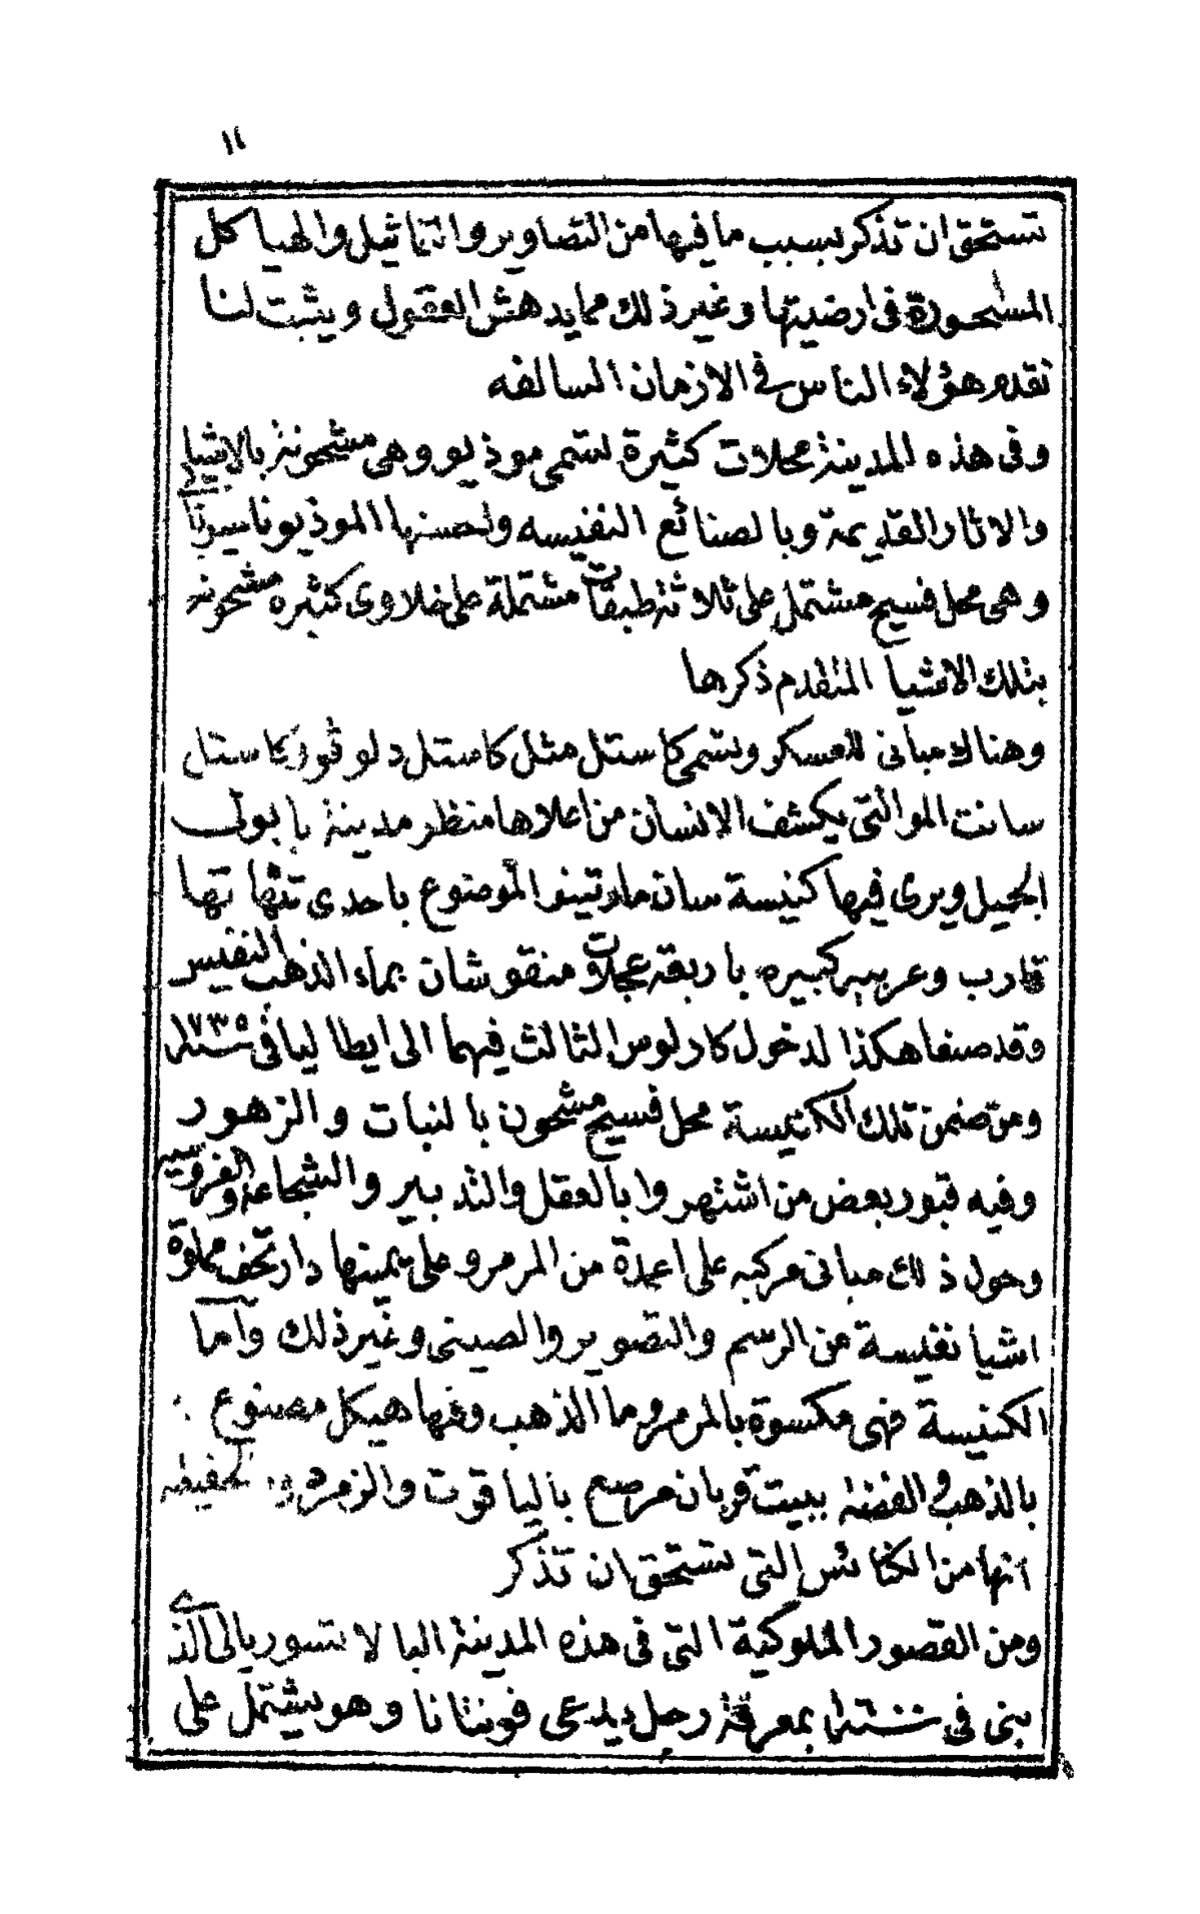 ١٤
تستحق ان تذكر بسبب ما فيها من التصاوير والتماثيل والهياكل
المسحورة فى ارضيتها وغير ذلك مما يدهش العقول ويثبت لنا
تقدم هؤلاء الناس فى الازمان السالفه
وفى هذه المدينة محلات كثيرة تسمى موذيو وهى مشحونة بالاشيا
والاثار القديمة وبالصنائع النفيسه ولحسنها الموذيو ناسيونا
وهى محل فسيح مشتمل على ثلاثة طبقات مشتملة على خلاوى كثيره مشحونه
بتلك الاشيا المتقدم ذكرها
وهناك مبانى للعسكر وتسمى كاستل مثل كاستل دلوڤو وكاستل
سانت المو التى يكشف الانسان من اعلاها منظر مدينة نابولى
الجميل ويرى فيها كنيسة سان مارتينو الموضوع باحدى تنهاتها
قارب وعربيه كبيره باربعة عجلات منقوشان بماء الذهب النفيس
وقد صنعا هكذا لدخول كارلوس الثالث فيهما الى ايطاليا فى سنة ١٧٣٥
ومن ضمن تلك الكنيسة محل فسيح مشحون بالنبات والزهور
وفيه قبور بعض من اشتهروا بالعقل والتدبير والشجاعة والفروسيه
وحول ذلك مبانى مركبه على اعمدة من المرمر وعلى يمينها دار تحف مملوة
اشيا نفيسة من الرسم والتصوير والصينى وغير ذلك واما
الكنيسة فهى مكسوة بالمرمر وما الذهب وفيها هيكل مصنوع
بالذهب والفضة ببيت قربان مرصع بالياقوت والزمرد والحقيقه
انها من الكنائس التى تستحق ان تذكر
ومن القصور الملوكية التى فى هذه المدينة البالاتسو ريالى الذى
بنى فى سنة بمعرفة رجل يدعى فونتانا وهو يشتمل على